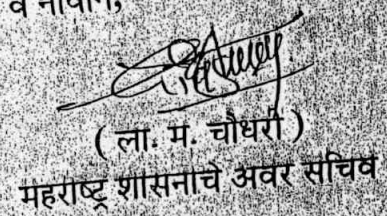 ( ला. म. चौधरी )
महाराष्ट्र शासनाचे अवर सचिव